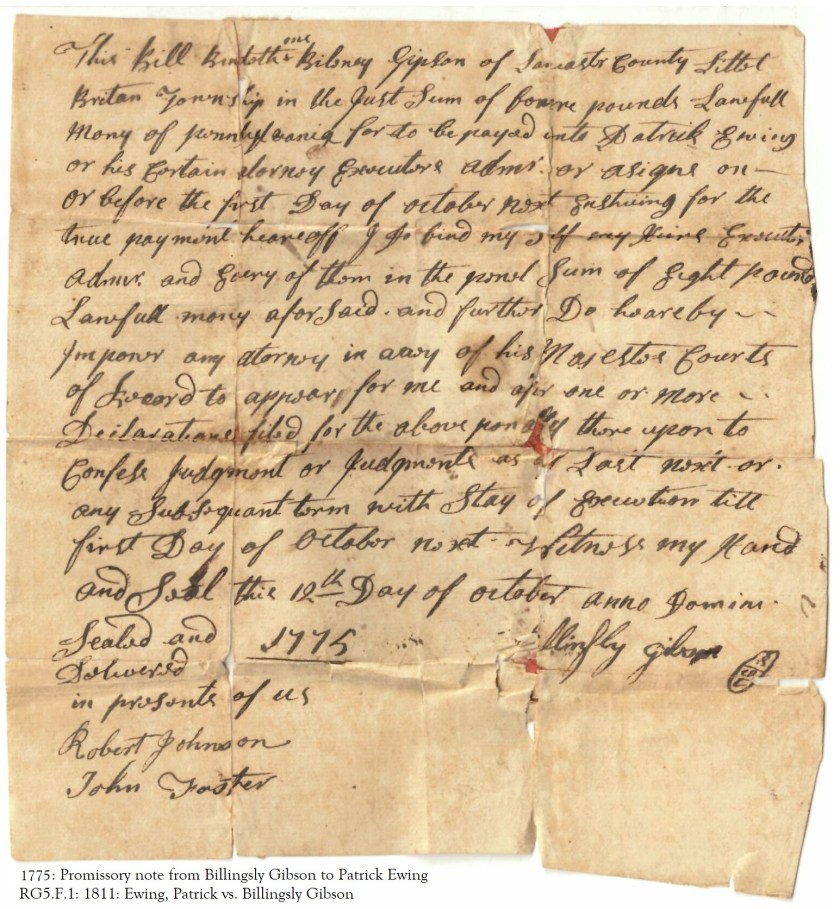 This Bill Bindeth me Bilsney Gipson of Lancastr County Littel
Britan Township in the Just Sum of fowre pounds Lawfull
Mony of pennsylvania for to be payed unto Patrick Ewing
or his Certain atorney Executors admr. or asigns on —
or before the first Day of october next Enshuing for the
true payment heareoff I Do bind my self my Heirs Executrs
admrs. and Every of them in the penel Sum of Eight pounds
Lawfull mony aforSaid. and further Do heareby ~ ~
Impower any atorney in aney of his Majestes Courts
of Record to appear for me and after one or more ~ .
Declarations filed for the above penalty there upon to
Confess Judgment or Judgments as of Last next or.
any Subsequant term with Stay of Execution till
first Day of October next Witness my Hand
and Seal this 12th Day of october anno Domini.
Sealed and 1775 Gibson
Delivered
in presents of us
Robert Johnson
John Foster
1775: Promissory note from Billingsly Gibson to Patrick Ewing
RG5.F.1: 1811: Ewing, Patrick vs. Billingsly Gibson